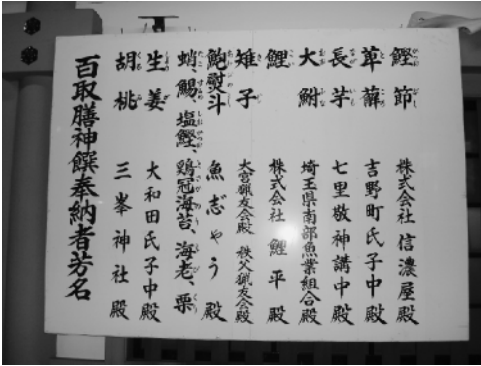 鰹節 株式会社 信濃屋殿
萆薢 吉野町氏子中殿
長芋 七里敬神講中殿
大鮒 埼玉県南部魚業組合殿
鯉 株式会社 鯉平殿
雉子 大宮猟友会殿 秩父猟友会殿
鮑熨斗 魚志やう殿
蛸、鯣、塩鰹、鶏冠海苔、海老、栗
生姜 大和田氏子中殿
胡桃 三峯神社殿
百取膳神饌奉納者芳名